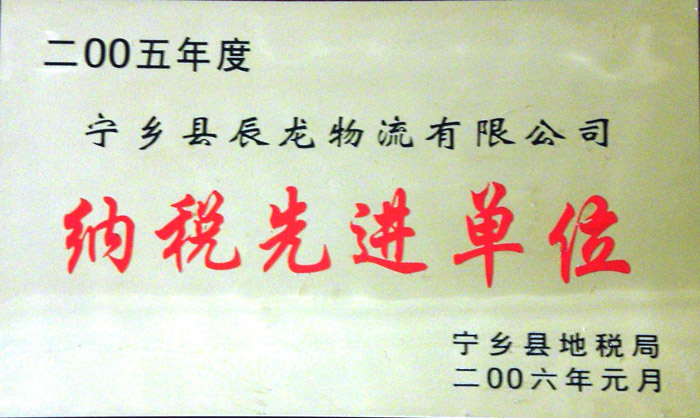 二00五年度
宁乡县辰龙物流有限公司
纳税先进单位
宁乡县地税局
二00六年元月